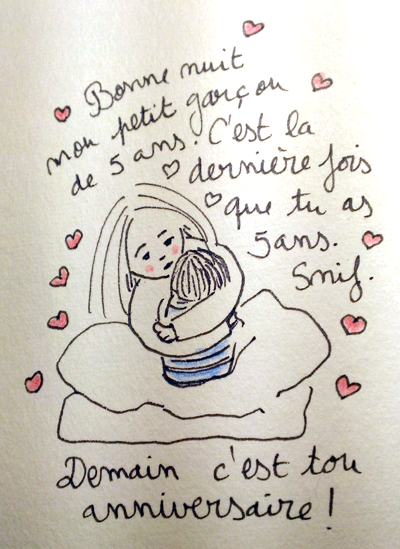 Bonne nuit
mon petit garçon
de 5 ans. C'est la
dernière fois
que tu as
5ans.
Snif.
Demain c'est ton
anniversaire !